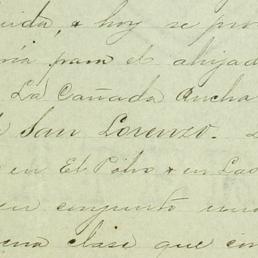 uida, & hoy se pro
ría para el ahijad
La Cañada Ancha
San Lorenzo.
en El Potro & en La
en conjunto una
ena clase que con